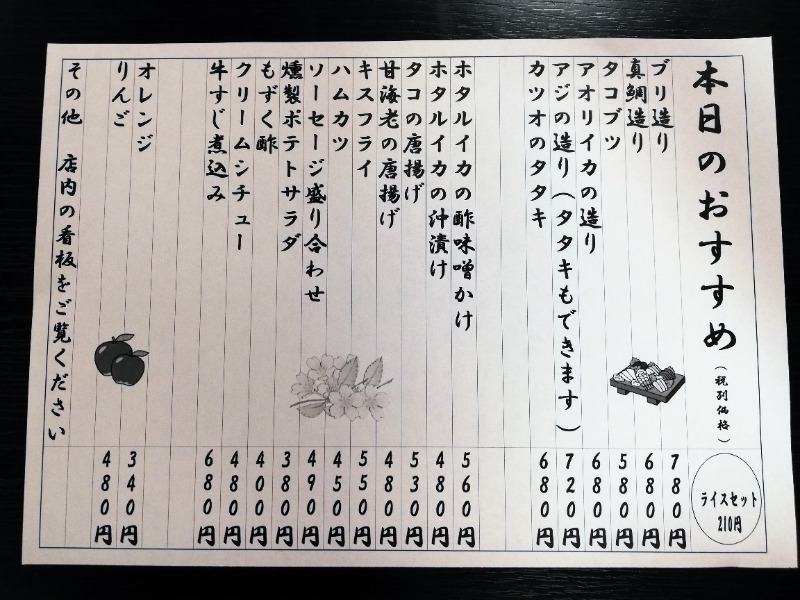 本日のおすすめ（税別価格）
ライスセット
210円
ブリ造り 780円
真鯛造り 680円
タコブツ 580円
アオリイカの造り 680円
アジの造り（タタキもできます） 720円
カツオのタタキ 680円
ホタルイカの酢味噌かけ 560円
ホタルイカの沖漬け 480円
タコの唐揚げ 530円
甘海老の唐揚げ 480円
キスフライ 550円
ハムカツ 450円
ソーセージ盛り合わせ 490円
燻製ポテトサラダ 380円
もずく酢 400円
クリームシチュー 480円
牛すじ煮込み 680円
オレンジ 340円
りんご 480円
その他 店内の看板をご覧ください